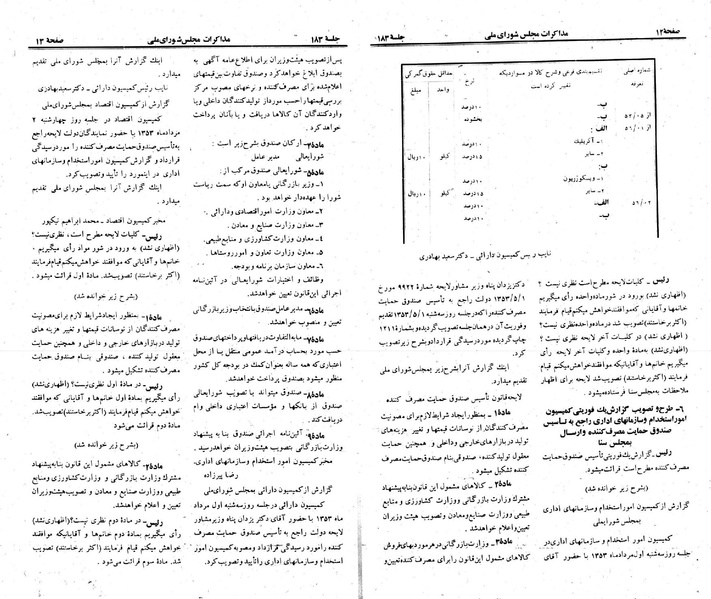 صفحهٔ ۱۲
مذاکرات مجلس شورای ملی
جلسهٔ ۱۸۳
شماره اصلی
تعرفه
تقسیم‌بندی فرعی وشرح کالا در مواردیکه
تغییر کرده است
نرخ
حداقل حقوق گمرکی
واحد
مبلغ
ب-
۱۰درصد
از ۵۲/۰۵
ب-
بخشوده
از ۵۶/۰۱
الف:
۱ـ آکریلیک
۱۰درصد
۲ـ سایر
۱۵درصد
کیلو
۱۰ریال
ب:
۱ـ ویسکوزریون
۱۰درصد
۲ـ سایر
۱۵درصد
کیلو
۱۰ریال
۵۶/۰۲
الف-
۱۰درصد
ب-
۱۰درصد
نایب رییس کمیسیون دارائی ـ دکترسعید بهادری
رئیس ـ کلیات لایحه مطرح است نظری نیست ؟
(اظهاری نشد) بورود در شور ماده واحده رأی میگیریم
خانمها و آقایانی که موافقند خواهش میکنم قیام فرمایند
(اکثر برخاستند) تصویب شد در ماده واحده نظری نیست؟
( اظهاری نشد) در کلیات آخر لایحه نظری نیست ؟
(اظهاری نشد) به مادۀ واحده و کلیات آخر لایحه رأی
میگیریم خانم‌ها و آقایانیکه موافقند خواهش میکنم قیام
فرمایند (اکثر برخاستند) تصویب شد لایحه برای اظهار
ملاحظات به مجلس سنا فرستاده میشود
۶ـ طرح و تصویب گزارش یک فوریتی کمیسیون
امور استخدام و سازمانهای اداری راجع به تأسیس
صندوق حمایت مصرف کننده و ارسال
بمجلس سنا
رئیس ـ گزارش یک فوریتی تأسیس صندوق حمایت
مصرف کننده مطرح است قرائت میشود.
(بشرح زیر خوانده شد)
گزارش از کمیسیون امور استخدام و سازمانهای اداری
بمجلس شورایملی
کمیسیون امور استخدام و سازمانهای اداری در
جلسه روز سه‌شنبه اول مرداد ماه ۱۳۵۳ با حضور آقای
دکتر یزدان پناه وزیر مشاور لایحه شمارۀ ۹۹۲۲ مورخ
۱۳۵۳/۵/۱ دولت راجع به تأسیس صندوق حمایت
مصرف کننده را که در جلسه روز سه‌شنبه ۱۳۵۳/۵/۱ تقدیم
و فوریت آن در همان جلسه تصویب گردیده و بشماره ۱۲۱۱
چاپ گردیده مورد رسیدگی قرار داد و بشرح زیر تصویب
کرد.
اینک گزارش آنرا بشرح زیر به مجلس شورای ملی
تقدیم میدارد.
لایحه قانونی تأسیس صندوق حمایت مصرف کننده
مادۀ۱ـ بمنظور ایجاد شرایط لازم برای مصونیت
مصرف کنندگان از نوسانات قیمتها و تغییر هزینه‌های
تولید در بازارهای خارجی و داخلی و همچنین حمایت
معقول تولید کننده ، صندوقی بنام صندوق حمایت مصرف کننده
تشکیل میشود
مادۀ۲ـ کالاهای مشمول این قانون بنا به پیشنهاد
مشترک وزارت بازرگانی و وزارت کشاورزی و منابع
طبیعی و وزارت صنایع و معادن و تصویب هیئت وزیران
تعیین و اعلام خواهد شد.
مادۀ۳ـ وزارت بازرگانی در هر مورد بهای فروش
کالاهای مشمول این قانون را برای مصرف کننده تعیین و
جلسهٔ ۱۸۳
مذاکرات مجلس شورای ملی
صفحهٔ ۱۳
پس از تصویب هیئت وزیران برای اطلاع عامه آگهی به
صندوق ابلاغ خواهد کرد و صندوق تفاوت بین قیمتهای
اعلام شده برای مصرف کننده و نرخهای مصوب مرکز
بررسی قیمتها را حسب مورد از تولید کنندگان داخلی و یا
وارد کنندگان آن کالاها دریافت و یا بآنان پرداخت
خواهد کرد.
مادۀ۴ـ ارکان صندوق بشرح زیر است :
شورایعالی    مدیر عامل
مادۀ۵ـ شورایعالی صندوق مرکب از:
۱ـ وزیر بازرگانی یا معاون او که سمت ریاست
شورا را عهده‌دار خواهد بود.
۲ـ معاون وزارت امور اقتصادی و دارائی .
۳ـ معاون وزارت صنایع و معادن .
۴ـ معاون وزارت کشاورزی و منابع طبیعی.
۵ـ معاون وزارت تعاون و امور روستاها .
۶ـ معاون سازمان برنامه و بودجه.
وظائف و اختیارات شورایعالی در آئین‌نامه
اجرائی این قانون تعیین خواهد شد.
مادۀ۶ـ مدیر عامل صندوق با انتخاب وزیر بازرگانی
تعیین و منصوب خواهد شد.
مادۀ۷ـ مابه‌التفاوت دریافتها و پرداختهای صندوق
حسب مورد بحساب درآمد عمومی منتقل یا از محل
اعتباری که همه ساله بعنوان کمک در بودجه کل کشور
منظور میشود بصندوق پرداخت خواهد شد.
مادۀ۸ـ صندوق میتواند با تصویب شورایعالی
صندوق از بانکها و مؤسسات اعتباری داخلی وام
دریافت کند.
مادۀ۹ـ آئین‌نامه اجرائی صندوق بنا به پیشنهاد
وزارت بازرگانی بتصویب هیئت وزیران خواهد رسید.
مخبر کمیسیون امور استخدام و سازمانهای اداری.
رضا پیرزاده
گزارش از کمیسیون دارائی بمجلس شورای ملی
کمیسیون دارائی در جلسه روز سه‌شنبه اول مرداد
ماه ۱۳۵۳ با حضور آقای دکتر یزدان پناه وزیر مشاور
لایحه دولت راجع به تأسیس صندوق حمایت مصرف
کننده را مورد رسیدگی قرار داد و مصوبه کمیسیون امور
استخدام و سازمانهای اداری را تأیید و تصویب کرد.
اینک گزارش آنرا بمجلس شورای ملی تقدیم
میدارد.
نایب رئیس کمیسیون دارائی ـ دکتر سعید بهادری
گزارش از کمیسیون اقتصاد بمجلس شورای ملی
کمیسیون اقتصاد در جلسه روز چهارشنبه ۲
مرداد ماه ۱۳۵۳ با حضور نمایندگان دولت لایحه راجع
به تأسیس صندوق حمایت مصرف کننده را مورد رسیدگی
قرار داد و گزارش کمیسیون امور استخدام و سازمانهای
اداری در اینمورد را تأیید و تصویب کرد.
اینک گزارش آنرا بمجلس شورای ملی تقدیم
میدارد .
مخبر کمیسیون اقتصاد ـ محمد ابراهیم نیکپور
رئیس ـ کلیات لایحه مطرح است ، نظری نیست؟
(اظهاری نشد) به ورود در شور مواد رأی میگیریم .
خانمها و آقایانی که موافقند خواهش میکنم قیام فرمایند
(اکثر برخاستند) تصویب شد. مادۀ اول قرائت میشود .
(بشرح زیر خوانده شد)
مادۀ۱ـ بمنظور ایجاد شرایط لازم برای مصونیت
مصرف کنندگان از نوسانات قیمتها و تغییر هزینه های
تولید در بازارهای خارجی و داخلی و همچنین حمایت
معقول تولید کننده ، صندوقی بنام صندوق حمایت
مصرف کننده تشکیل میشود
رئیس ـ در مادۀ اول نظری نیست؟ (اظهاری نشد)
رأی میگیریم بمادۀ اول خانمها و آقایانیکه موافقند
خواهش میکنم قیام فرمایند (اکثر برخاستند) تصویب شد.
مادۀ دوم قرائت میشود
(بشرح زیر خوانده شد)
مادۀ۲ـ کالاهای مشمول این قانون بنا به پیشنهاد
مشترک وزارت بازرگانی و وزارت کشاورزی و منابع
طبیعی و وزارت صنایع و معادن و تصویب هیئت وزیران
تعیین و اعلام خواهد شد.
رئیس ـ در مادۀ دوم نظری نیست؟ (اظهاری نشد)
رأی میگیریم بمادۀ دوم خانمها و آقایانیکه موافقند
خواهش میکنم قیام فرمایند (اکثر برخاستند) تصویب
شد. مادۀ سوم قرائت میشود.